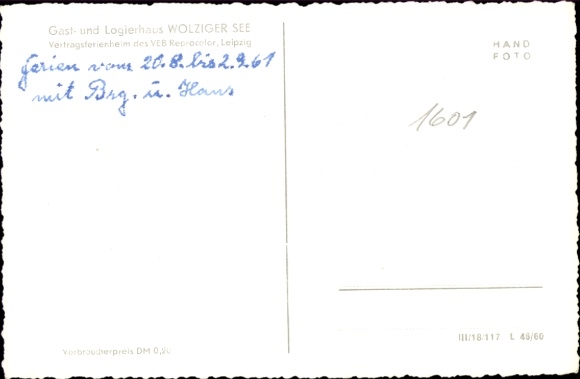 Gast- und Logierhaus WOLZIGER SEE
Vertragsferienheim des VEB Reprocolor, Leipzig
Ferien vom 20.8. bis 2.9.61
mit Brg. u. Hans
HAND
FOTO
1601
III/18/117 L 46/60
Verbraucherpreis DM 0,20